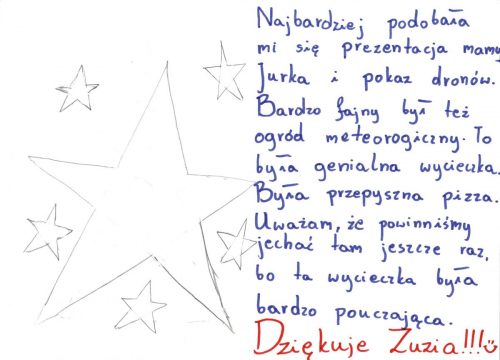 Najbardziej podobała
mi się prezentacja mamy
Jurka i pokaz dronów.
Bardzo fajny był też
ogród meteorogiczny. To
była genialna wycieczka.
Była przepyszna pizza.
Uważam, że powinniśmy
jechać tam jeszcze raz,
bo ta wycieczka była
bardzo pouczająca.
Dziękuje Zuzia!!!